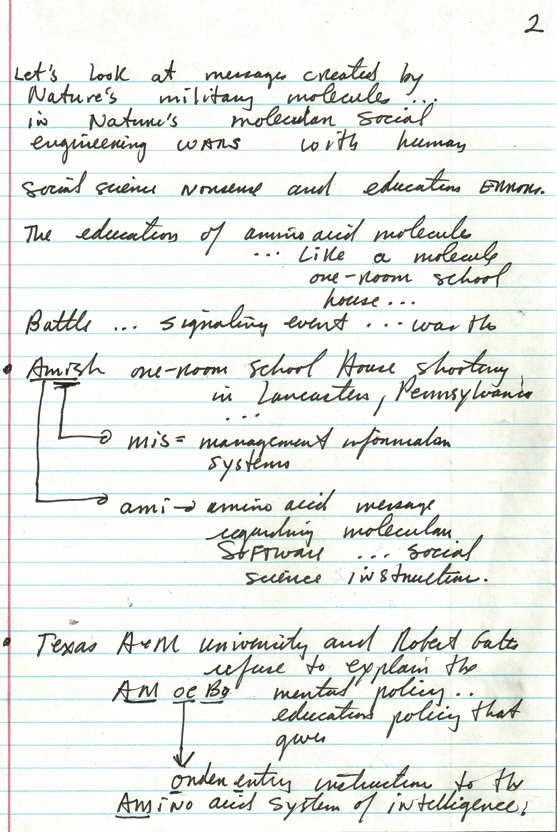 2
Let's look at messages created by
Nature's military molecules ...
in Nature's molecular social
engineering wars with human
social science nonsense and education errors.
The education of amino acid molecule
... Like a molecule
one-room school
house ...
Battle ... signaling event ... was the
• Amish one-room school House shooting
in Lancaster, Pennsylvania
...
mis = management information
systems
ami → amino acid message
regarding molecular
software ... social
science instruction.
• Texas A+M university and Robert Gates
refuse to explain the
AM oe Ba mental policy ..
education policy that
gives
onden entry instruction to the
Amino acid system of intelligence;